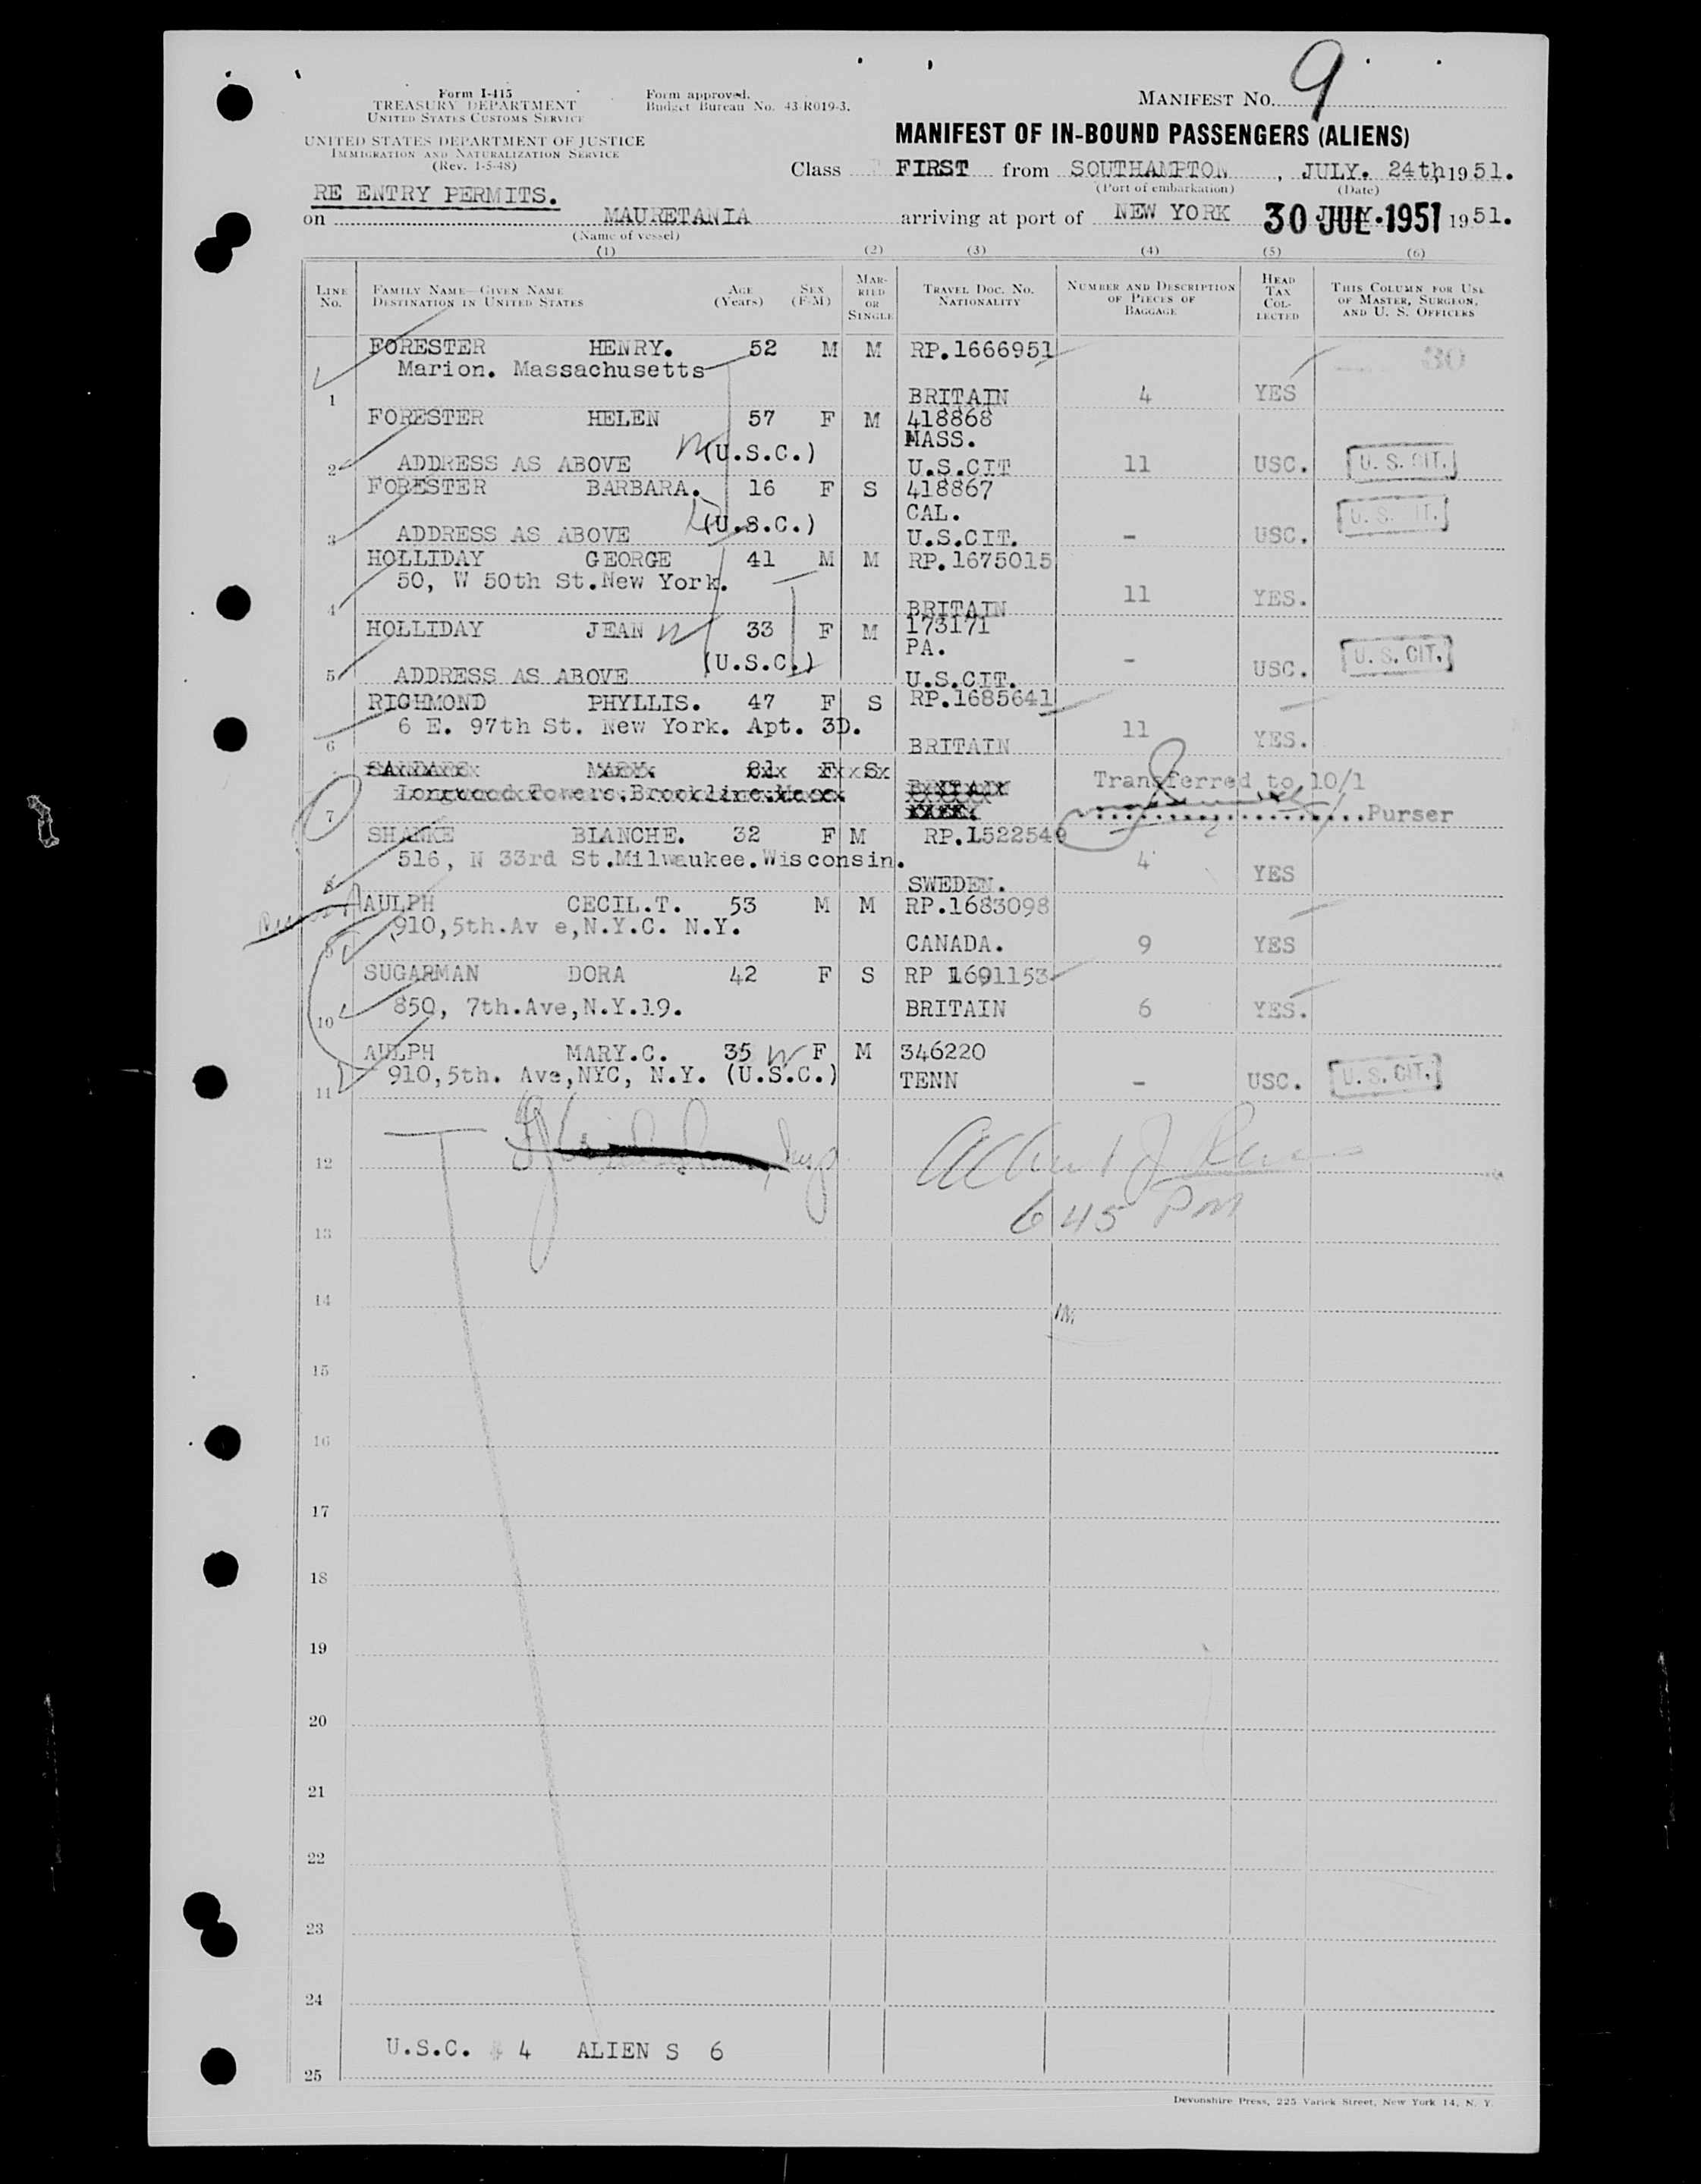 9
Form I-415
TREASURY DEPARTMENT
UNITED STATES CUSTOMS SERVICE
Form approved.
Budget Bureau No. 43-R019-3.
MANIFEST No.
UNITED STATES DEPARTMENT OF JUSTICE
IMMIGRATION AND NATURALIZATION SERVICE
(Rev. 1-5-48)
MANIFEST OF IN-BOUND PASSENGERS (ALIENS)
Class FIRST from SOUTHAMPTON, JULY. 24th, 1951.
(Port of embarkation) (Date)
RE ENTRY PERMITS.
on MAURETANIA arriving at port of NEW YORK 30 JUL 1951 1951.
(Name of vessel)
(1) (2) (3) (4) (5) (6)
LINE No. FAMILY NAME—GIVEN NAME DESTINATION IN UNITED STATES AGE (Years) SEX (F-M) MARRIED OR SINGLE TRAVEL DOC. NO. NATIONALITY NUMBER AND DESCRIPTION OF PIECES OF BAGGAGE HEAD TAX COLLECTED THIS COLUMN FOR USE OF MASTER, SURGEON, AND U. S. OFFICERS
FORESTER HENRY. 52 M M RP.1666951 30
Marion. Massachusetts
1 BRITAIN 4 YES
FORESTER HELEN 57 F M 418868
(U.S.C.) MASS.
2 ADDRESS AS ABOVE U.S.CIT 11 USC. U. S. CIT.
FORESTER BARBARA. 16 F S 418867
(U.S.C.) CAL.
3 ADDRESS AS ABOVE U.S.CIT. - USC. U. S. CIT.
HOLLIDAY GEORGE 41 M M RP.1675015
50, W 50th St.New York.
4 BRITAIN 11 YES.
HOLLIDAY JEAN W 33 F M 173171
(U.S.C.) PA.
5 ADDRESS AS ABOVE U.S.CIT. - USC. U. S. CIT.
RICHMOND PHYLLIS. 47 F S RP.1685641
6 E. 97th St. New York. Apt. 3D.
6 BRITAIN 11 YES.
MARY 81 F S
Longwood Towers.Brookline.Mass BRITAIN Transferred to 10/1
7 Purser
SHANKE BLANCHE. 32 F M RP.1522549
516, N 33rd St.Milwaukee.Wisconsin.
8 SWEDEN. 4 YES
AULPH CECIL.T. 53 M M RP.1683098
910,5th.Av e,N.Y.C. N.Y.
9 CANADA. 9 YES
SUGARMAN DORA 42 F S RP 1691153
10 850, 7th.Ave,N.Y.19. BRITAIN 6 YES.
AULPH MARY.C. 35 W F M 346220
11 910,5th. Ave,NYC, N.Y. (U.S.C.) TENN - USC. U. S. CIT.
12 Albert J
645 PM
13
14
15
16
17
18
19
20
21
22
23
24
U.S.C. 4 ALIEN S 6
25
Devonshire Press, 225 Varick Street, New York 14, N. Y.